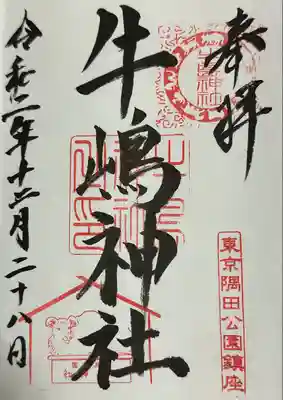 奉拝
牛嶋神社
東京隅田公園鎮座
令和二年十二月二十八日